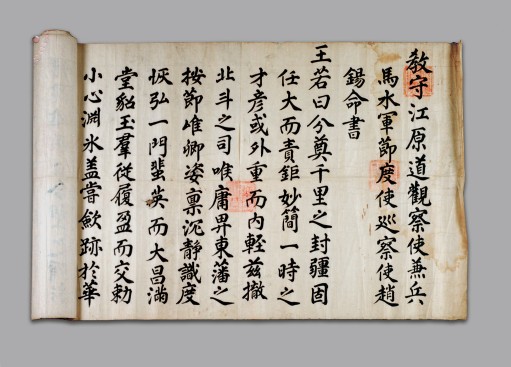 教守江原道觀察使兼兵
馬水軍節度使巡察使趙
錫命書
王若曰分奠千里之封疆固
任大而責鉅妙簡一時之
才彦或外重而内輕茲撤
北斗之司喉庸畀東藩之
按節唯卿姿禀沈静識度
恢弘一門蜚英而大昌滿
堂貂玉羣從履盈而交勅
小心淵氷盖嘗歛跡於華